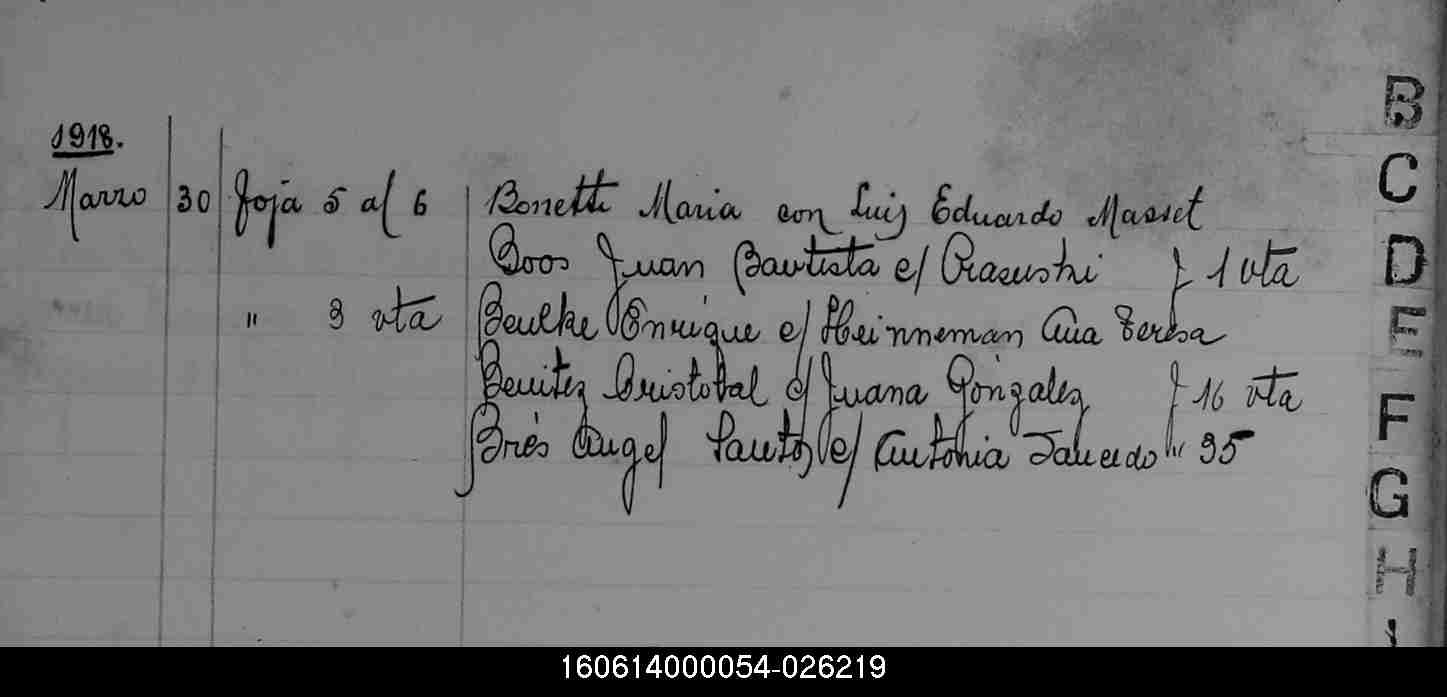 1918.
Marzo 30 foja 5 al 6 Bonetti Maria con Luis Eduardo Masset
Boos Juan Bautista c/ f 1 vta
" 3 vta Beulke Enrique c/ Heinneman Ana Teresa
Benitez Cristobal c/ Juana Gonzalez f 16 vta
Brés Angel Santos c/ Antonia " 35
B
C
D
E
F
G
H
I
160614000054-026219